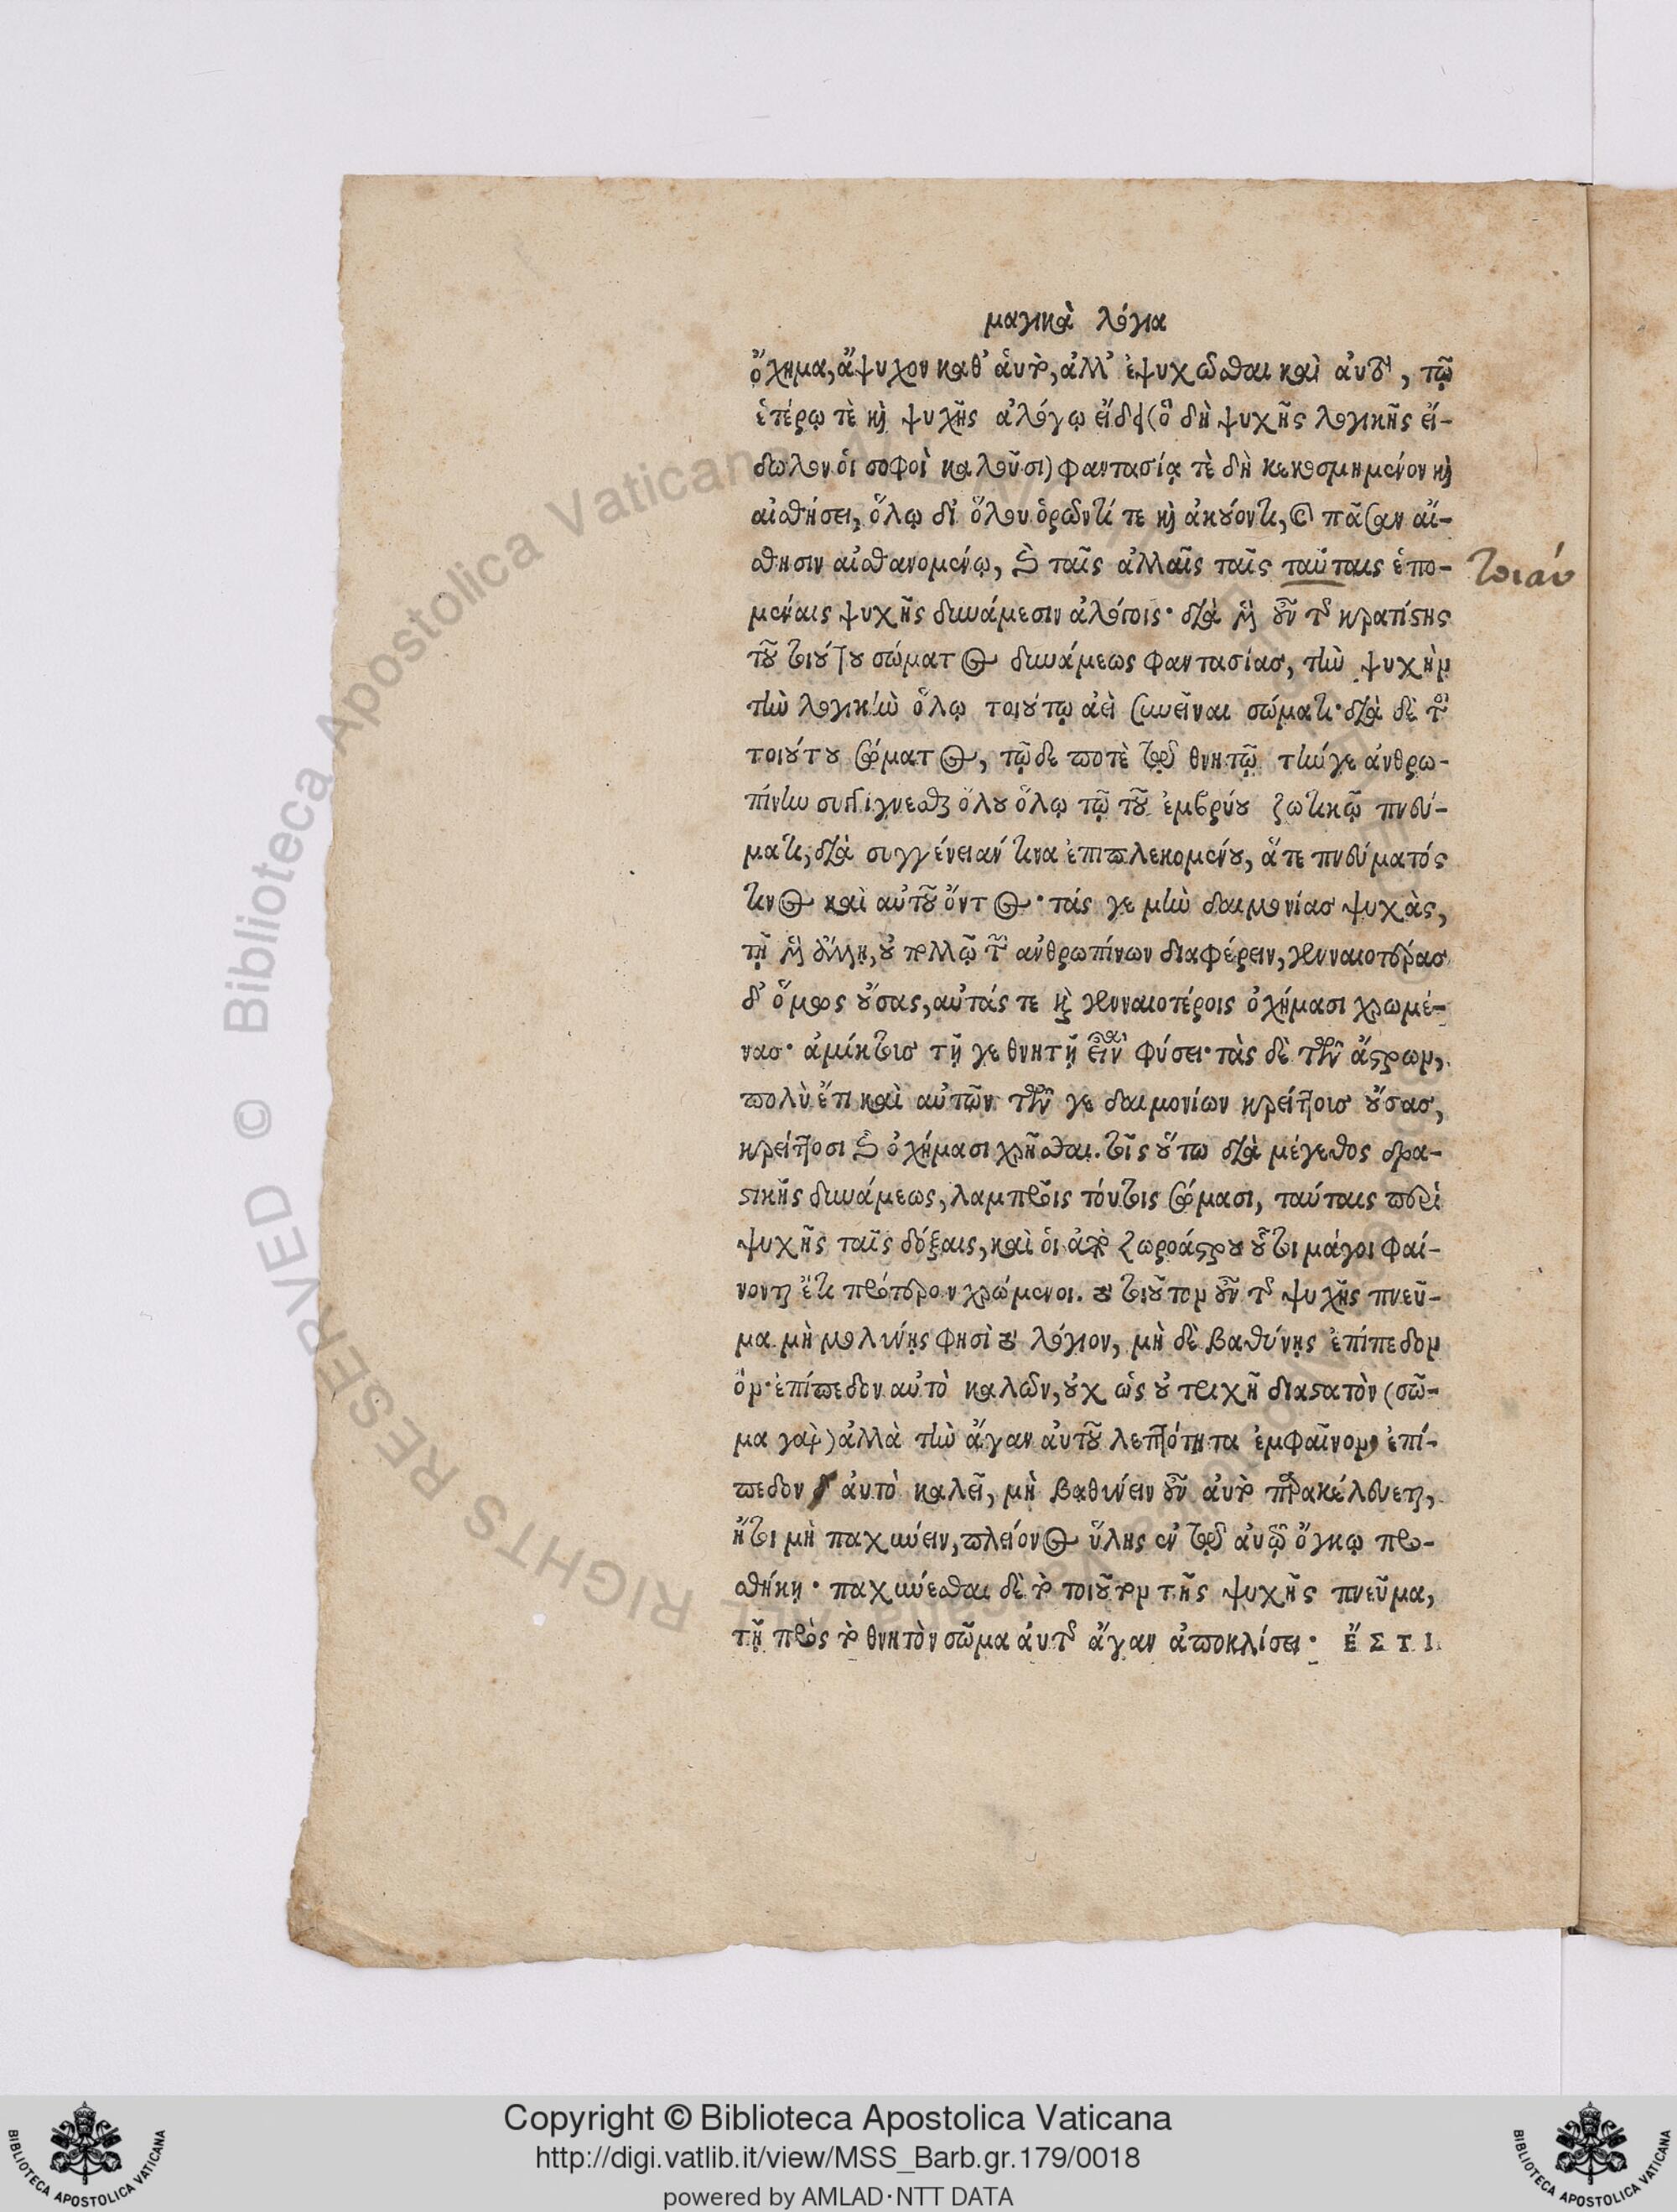 μαγικὰ λόγια
ὄχημα, ἄψυχον καθ᾽ ἁυτὸ, ἀλλ᾽ ἐψυχῶσθαι καὶ ἀυτὸ, τῷ
ἑτέρῳ τὲ καὶ ψυχῆς ἀλόγῳ εἴδει (ὃ δὴ ψυχῆς λογικῆς εἴ-
δωλον ὁι σοφοὶ καλοῦσι) φαντασίᾳ τὲ δὴ κεκοσμημένον καὶ
αἰσθήσει, ὅλῳ δι᾽ ὅλου ὁρῶντί τε καὶ ἀκούοντι, καὶ πᾶσαν αἴ-
σθησιν αἰσθανομένῳ, καὶ ταῖς ἀλλαῖς ταῖς ταύταις ἑπο-
μέναις ψυχῆς δυνάμεσιν ἀλόγοις· διὰ μὲν οὖν τῆς κρατίστης
τοῦ τοιούτου σώματος δυνάμεως φαντασίας, τὴν ψυχὴν
τὴν λογικὴν ὅλῳ τοιούτῳ ἀεὶ συνεῖναι σώματι· διὰ δὲ τοῦ
τοιούτου σώματος, τῷδε ποτὲ τῷ θνητῷ τήνγε ἀνθρω-
πίνην συγγίγνεσθαι ὅλου ὅλῳ τῷ τοῦ ἐμβρύου ζωτικῷ πνεύ-
ματι, διὰ συγγένειαν τινα ἐπιπλεκομένου, ἅτε πνεύματός
τινος καὶ αὐτοῦ ὄντος· τάς γε μὴν δαιμονίας ψυχὰς,
τῇ μὲν ἄλλῃ, οὐ πολλῷ τῶν ἀνθρωπίνων διαφέρειν, γενναιοτέρας
δ᾽ ὅμως οὔσας, αὐτάς τε καὶ γενναιοτέροις ὀχήμασι χρωμέ-
νας· ἀμίκτοις τῇ γε θνητῇ εἶναι φύσει· τὰς δὲ τῶν ἄστρων,
πολὺ ἔτι καὶ αὐτῶν τῶν γε δαιμονίων κρείττοις οὔσας,
κρείττοσι καὶ ὀχήμασι χρῆσθαι. τοῖς οὕτω διὰ μέγεθος δρα-
στικῆς δυνάμεως, λαμπροῖς τούτοις σώμασι, ταύταις περὶ
ψυχῆς ταῖς δόξαις, καὶ ὁι ἀπὸ Ζωροάστρου οὗτοι μάγοι φαί-
νονται ἔτι πρότερον χρώμενοι. τὸ τοιοῦτον οὖν τῆς ψυχῆς πνεῦ-
μα μὴ μολύνῃς φησὶ τὸ λόγιον, μὴ δὲ βαθύνῃς ἐπίπεδον
ὄν· ἐπίπεδον αὐτὸ καλῶν, οὐχ ὡς οὐ τριχῆ διαστατὸν (σῶ-
μα γὰρ) ἀλλὰ τὴν ἄγαν αὐτοῦ λεπτότητα ἐμφαῖνον, ἐπί-
πεδον ἀυτὸ καλεῖ, μὴ βαθύνειν οὖν ἀυτὸ παρακελεύεται,
ἤτοι μὴ παχύνειν, πλείονος ὕλης ἐν τῷ ἀυτῷ ὄγκῳ προ-
σθήκῃ· παχύνεσθαι δὲ τὸ τοιοῦτον τῆς ψυχῆς πνεῦμα,
τῇ πρὸς τὸ θνητὸν σῶμα ἀυτῆς ἄγαν ἀποκλίσει· ἜΣΤΙ
τοιάυ
Copyright © Biblioteca Apostolica Vaticana
http://digi.vatlib.it/view/MSS_Barb.gr.179/0018
powered by AMLAD·NTT DATA
BIBLIOTECA APOSTOLICA VATICANA
BIBLIOTECA APOSTOLICA VATICANA